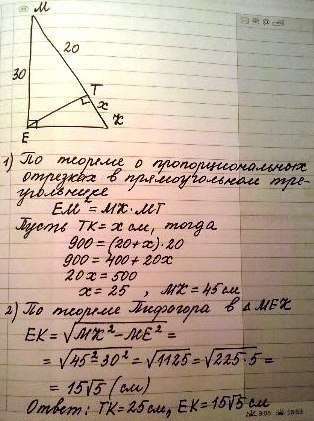 M
20
30
T
x
E
K
1) По теореме о пропорциональных
отрезках в прямоугольном тре-
угольнике
EM² = MK · MT
Пусть TK = x см, тогда
900 = (20+x) · 20
900 = 400 + 20x
20x = 500
x = 25 , MK = 45 см
2) По теореме Пифогора в △ MEK
EK = √MK² - ME² =
= √45² - 30² = √1125 = √225 · 5 =
= 15√5 (см)
Ответ: TK = 25 см, EK = 15√5 см